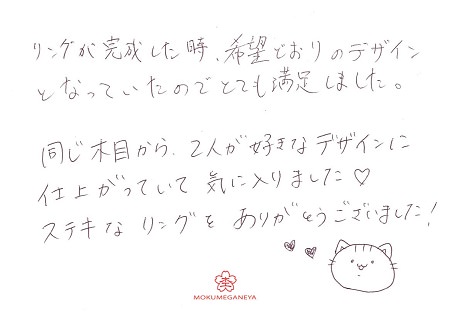 リングが完成した時、希望どおりのデザイン
となっていたのでとても満足しました。
同じ木目から、2人が好きなデザインに
仕上がっていて気に入りました♡
ステキなリングをありがとうございました！
MOKUMEGANEYA